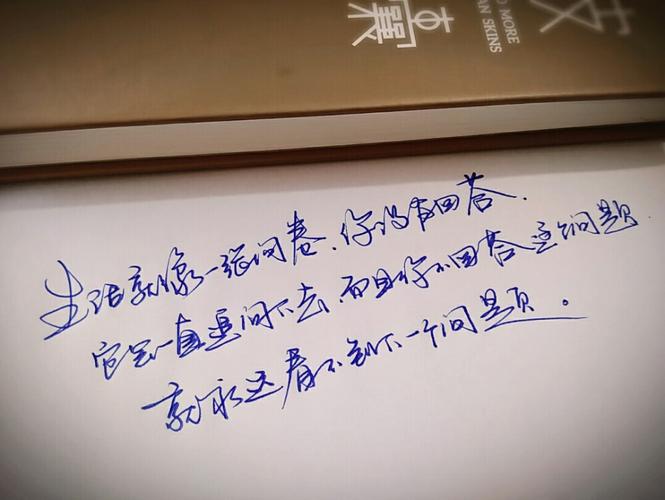 O MORE
AN SKINS
生活就像一张问卷,你没有回答,
它会一直追问下去,而且你不回答这个问题
就永远看不到下一个问题。